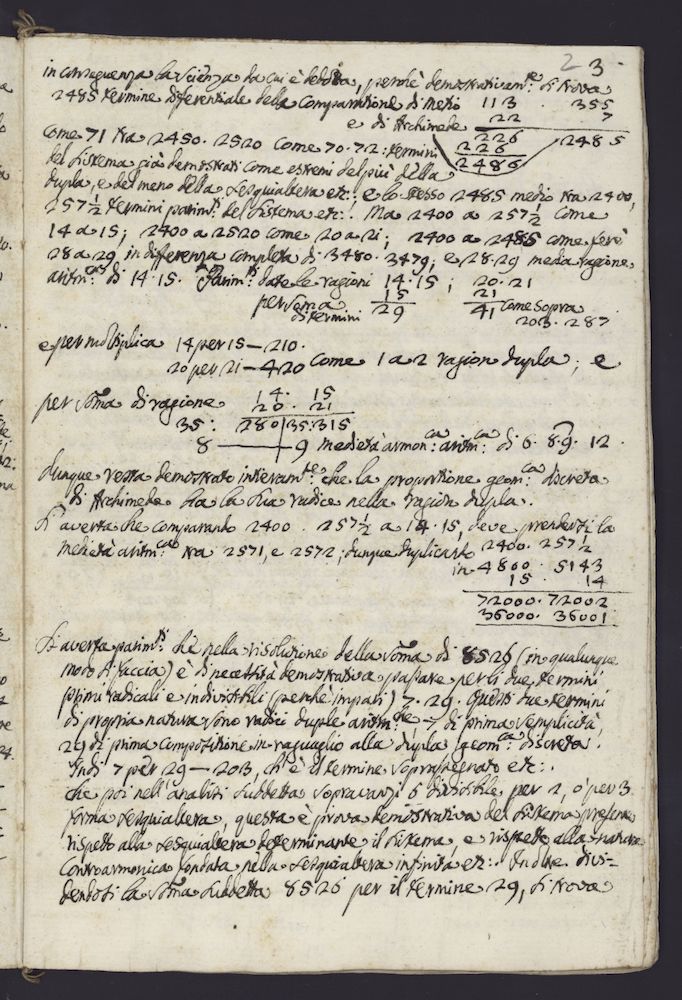 2 3.
in conseguenza la Scienza da cui è dedotta, perchè demostrativam.te si trova
2485 termine differenziale della comparazione di Metio 113 . 355
e di Archimede 22 7
226 2485
come 71 tra 2450. 2520 come 70. 72: termini 226
2486
del Sistema già demostrati come estremi del più della
dupla, e del meno della Sesquialtera etc.; e lo stesso 2485 medio tra 2400,
257½ termini parim.te del Sistema etc: Ma 2400 a 257½ come
14 a 15; 2400 a 2520 come 20 a 21; 2400 a 2485 come però
28 a 29 in differenza completa di 3480. 3479; e 28. 29 media ragione
aritm.ca di 14. 15. Parim.te date le ragioni 14. 15 ; 20. 21
per Soma 15 21 come Sopra
di termini 29 41 203. 287
e per moltiplica 14 per 15 — 210.
20 per 21 — 420 come 1 a 2 ragion dupla; e
per Soma di ragione 14. 15
20. 21
35: 280|35:315
8 — 9 medietà armon.ca aritm.ca di 6. 8. 9. 12.
dunque resta demostrato interam.te che la proportione geom.ca discreta
di Archimede ha la Sua radice nella ragion dupla.
S'averta che comparando 2400 . 257½ a 14. 15, deve prendersi la
medietà aritm.ca tra 2571, e 2572; dunque duplicando 2400. 257½
in 4800 . 5143
15 . 14
72000. 72002
36000. 36001
S'averta parim.te che nella risoluzione della Soma di 8526 (in qualunque
modo si faccia) è di necessità demostrativa passare per li due termini
primi radicali e indivisibili (perchè impari) 7. 29. Questi due termini
di propria natura sono radici duple aritm.che — 7 di prima semplicità,
29 di prima composizione in raguaglio alla dupla geom.ca discreta.
Indi 7 per 29 — 203, ch'è il termine soprasegnato etc:.
che poi nell'analisi Suddetta sopravanzi 6 divisibile per 2, o per 3
forma Sesquialtera, questa è prova demostrativa del Sistema presente
rispetto alla Sesquialtera determinante il Sistema, e rispetto alla natura
Controarmonica fondata nella Sesquialtera infinita etc: Inoltre divi-
dendosi la Soma Suddetta 8526 per il termine 29, si trova